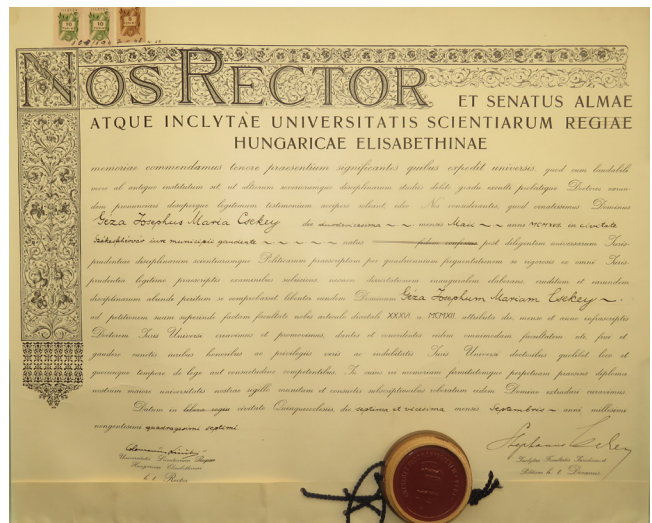 10 10
NOS RECTOR ET SENATUS ALMAE
ATQUE INCLYTAE UNIVERSITATIS SCIENTIARUM REGIAE
HUNGARICAE ELISABETHINAE
memoriae commendamus tenore praesentium significantes quibus expedit universis, quod cum laudabili
more ab antiquo institutum sit ut altiorum severiorumque disciplinarum studiis debito gradu exculti probatique Doctores earun-
dem pronunciari desuperque legitimum testimonium accipere soleant, ideo Nos considerantes, quod ornatissimus Dominus
Géza Josephus Maria Csekey die duodevicesima mensis Maii anno MCMXXI. in civitate
iure municipii gaudente natus post diligentem universarum Juris-
prudentiae disciplinarum scientiarumque Politicarum praescriptam per quadriennium frequentationem se rigorosis ex omni Juris-
prudentia legitime praescriptis examinibus subiecisset, necnon dissertationem inauguralem elaborans, eruditum et earundem
disciplinarum abunde peritum se comprobaret libenter eundem Dominum Géza Josephum Mariam Csekey
ad petitionem suam superinde factam facultate nobis articulo dietali XXXVI. a. MCMXII. attributa die mense et anno infrascriptis
Doctorem Juris Universi creavimus et promovimus, dantes et concedentes eidem omnimodam facultatem uti, frui et
gaudere cunctis iuribus honoribus ac privilegiis veris ac indubitatis Juris Universi doctoribus quolibet loco et
quocunque tempore de lege aut consuetudine competentibus. In cuius rei memoriam firmitatemque perpetuam praesens diploma
nostrum maiore universitatis nostrae sigillo munitum et consuetis subscriptionibus roboratum eidem Domino extradari curavimus.
Datum in libera regia civitate Quinqueecclesiis, die septima et vicesima mensis Septembris anni millesimi
nongentesimi quadragesimi septimi.
Universitatis Scientiarum Regiae
Hungaricae Elisabethinae
h. t. Rector
Stephanus Csekey
Inclytae Facultatis Juridicae et
Politicae h. t. Decanus